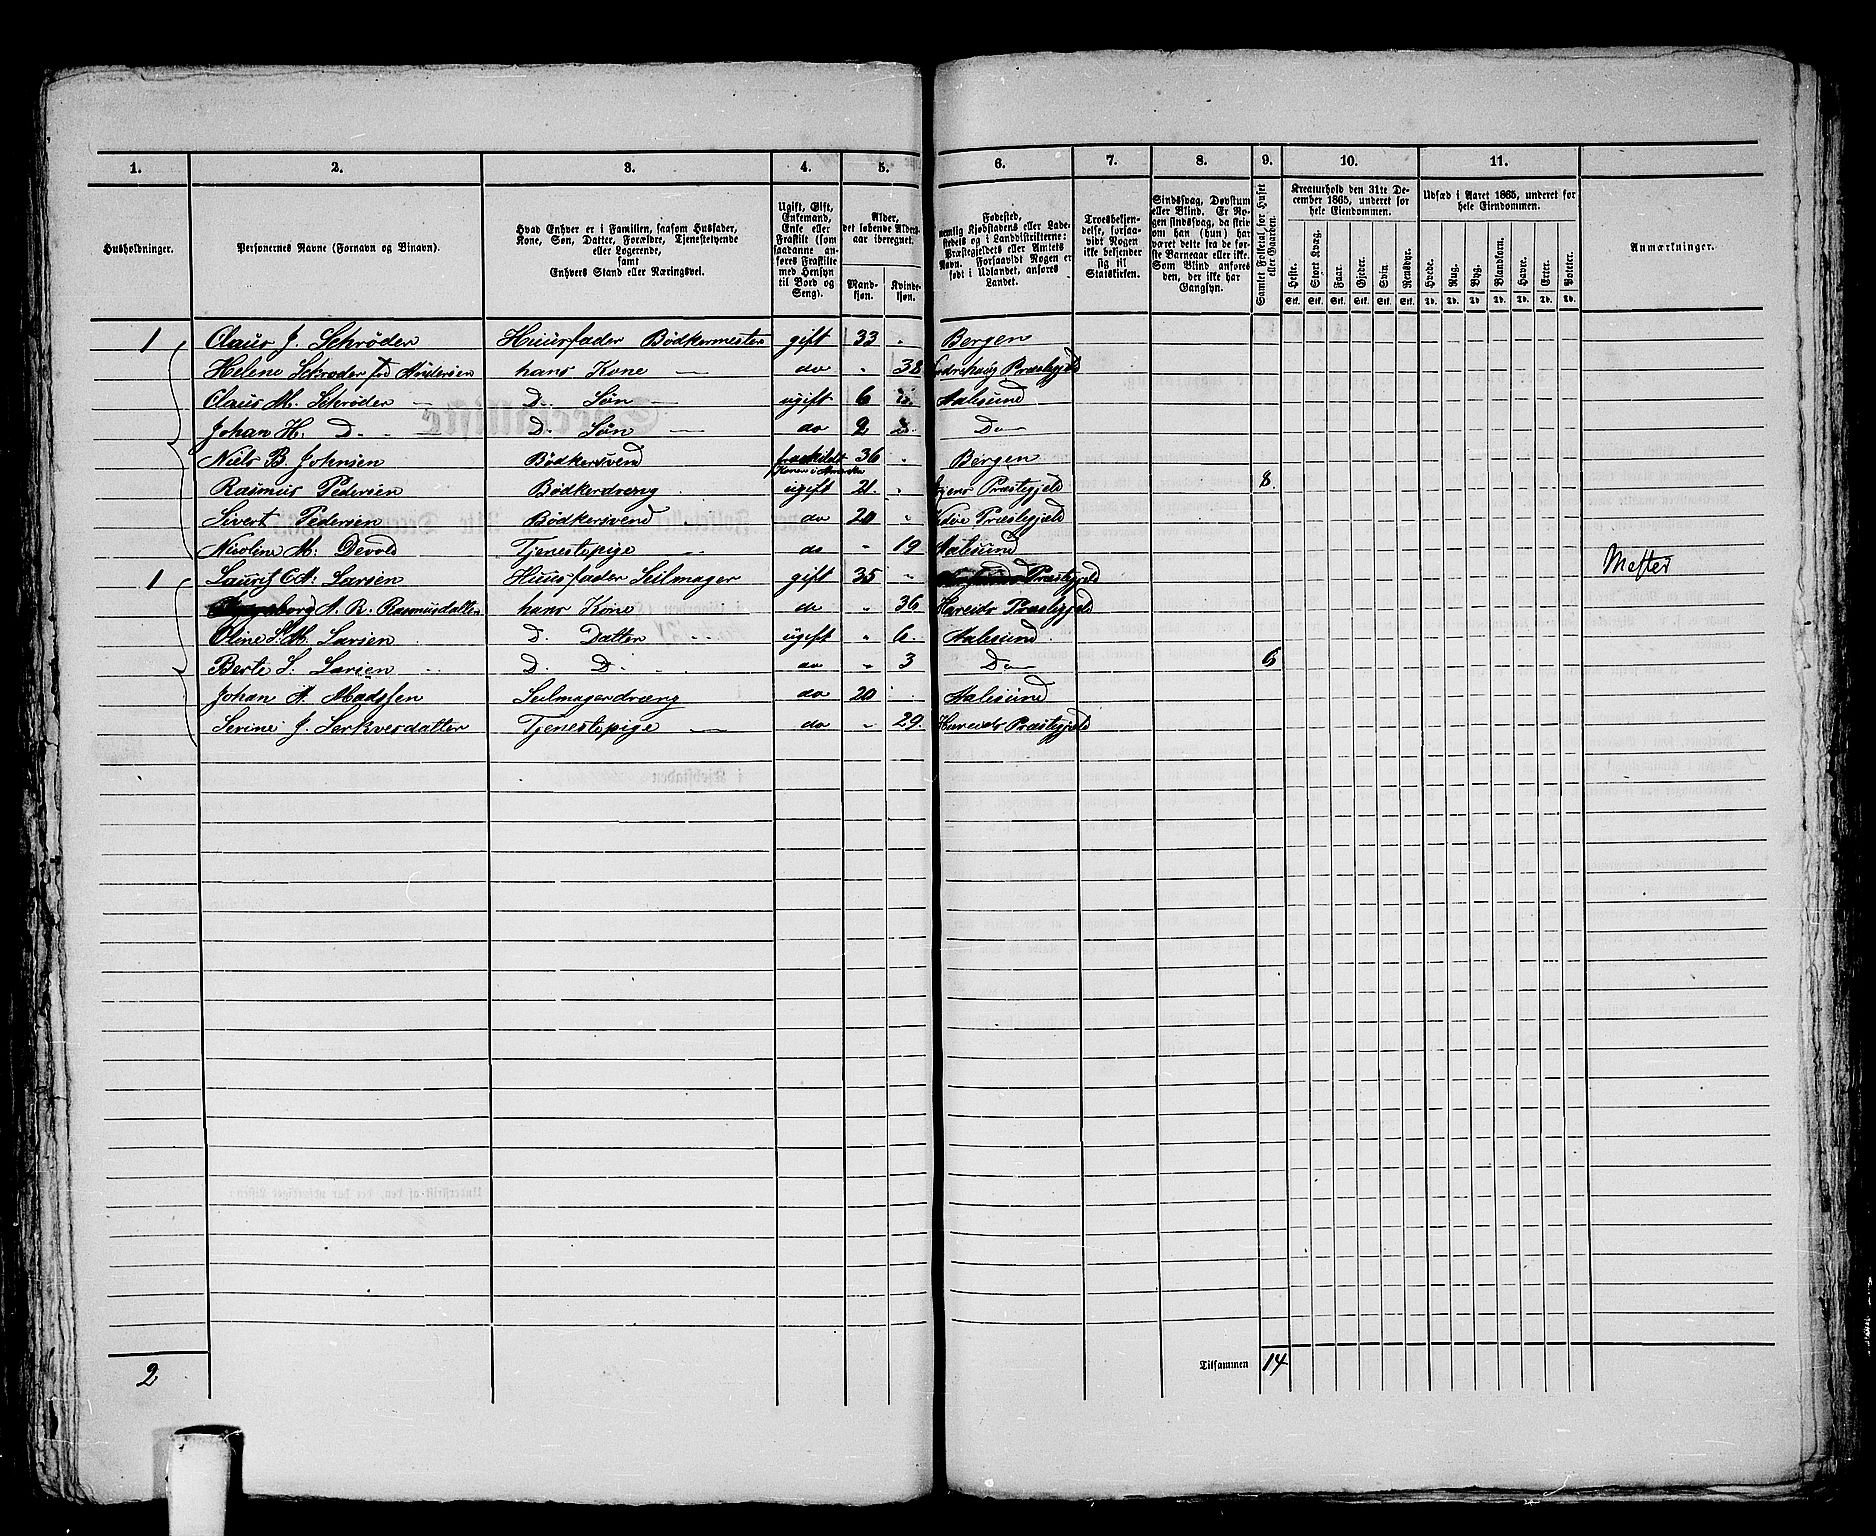 1. 2. 3. 4. 5. 6. 7. 8. 9. 10. 11.
Husholdninger.
Personernes Navne (Fornavn og Binavn).
Hvad Enhver er i Familien, saasom Husfader,
Kone, Søn, Datter, Forældre, Tjenestetyende
eller Logerende,
samt
Enhvers Stand eller Næringsvei.
Ugift, Gift,
Enkemand,
Enke eller
Fraskilt (som
saadanne an-
føres Fraskilte
med Hensyn
til Bord og
Seng).
Alder,
det løbende Alders-
aar iberegnet.
Mand-
kjøn.
Kvinde-
kjøn.
Fødested,
nemlig Kjøbstadens eller Lade-
stedets og i Landdistrikterne:
Præstegjeldets eller Amtets
Navn. Forsaavidt Nogen er
født i Udlandet, anføres
Landet.
Troesbekjen-
delse, forsaa-
vidt Nogen
ikke bekjender
sig til
Statskirken.
Sindssvag, Døvstum
eller Blind. Er No-
gen sindssvag, da skriv
om han (hun) har
været dette fra de før-
ste Barneaar eller ikke.
Som Blind anføres
den, der ikke har
Gangsyn.
Samlet Folketal for Huset
eller Gaarden.
Kreaturhold den 31te De-
cember 1865, underet for
hele Eiendommen.
Heste. Stort Kvæg. Faar. Gjeder. Svin. Rensdyr.
Stk. Stk. Stk. Stk. Stk. Stk.
Udsæd i Aaret 1865, underet for
hele Eiendommen.
Hvede. Rug. Byg. Blandkorn. Havre. Erter. Poteter.
Td. Td. Td. Td. Td. Td. Td.
Anmærkninger.
1 Claus J. Schrøder Huusfader Bødkermester gift 33 " Bergen
Helene Schrøder fød Andersen hans Kone — do " 38 Præstegjeld
Claus M. Schrøder — D. Søn ugift 6 Aalesund
Johan H. D. — — D. Søn — do 2 Do —
Niels B. Johnsen Bødkersvend fraskildt 36 " Bergen
Rasmus Pedersen Bødkerdreng ugift 21. " Præstegjeld 8.
Sivert Pedersen Bødkersvend " do 20 " Præstegjeld
Nicoline M. Devold Tjenestepige — do " 19 Aalesund
1 Laurits A. Larsen Huusfader Seilmager gift 35 " Præstegjeld Mester
A. R. Rasmusdatter hans Kone do " 36 Hareids Præstegjeld
Oline S. M. Larsen D. Datter ugift " 6. Aalesund
Berte S. Larsen D. D. do " 3 Do — 6
Johan A. Madssen Seilmagerdreng do 20 " Aalesund
Serine J. Serkvesdatter Tjenestepige — do " 29. Hareids Præstegjeld
2 Tilsammen 14